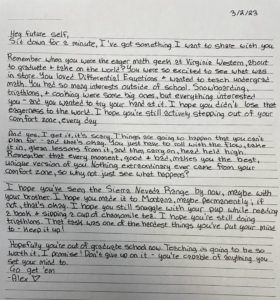 3/2/23
Hey future self,
Sit down for a minute, I've got something I want to share with you.
Remember when you were the eager math geek at Virginia Western, about
to graduate & take on the world? You were so excited to see what was
in store. You loved Differential Equations & wanted to teach undergrad
math. You had so many interests outside of school. Snowboarding,
triathlons, & cooking were some big ones, but everything interested
you - and you wanted to try your hand at it. I hope you didn't lose that
eagerness to the world. I hope you're still actively stepping out of your
comfort zone, every day.
And yes, I get it, it's scary. Things are going to happen that you can't
plan for - and that's okay. You just have to roll with the flow, take
it in, glean lessons from it, and then carry on, head held high.
Remember that every moment, good & bad, makes you the best,
unique version of you. Nothing extraordinary ever came from your
comfort zone, so why not just see what happens?
I hope you've seen the Sierra Nevada Range. By now, maybe with
your brother. I hope you made it to Montana, maybe permanently, if
not, that's okay. I hope you still snuggle with your pup while reading
a book & sipping a cup of chamomile tea. I hope you're still doing
triathlons. That task was one of the hardest things you've put your mind
to - keep it up!
Hopefully you're out of graduate school now. Teaching is going to be so
worth it, I promise! Don't give up on it - you're capable of anything you
set your mind to.
Go get 'em
-Alex ♡